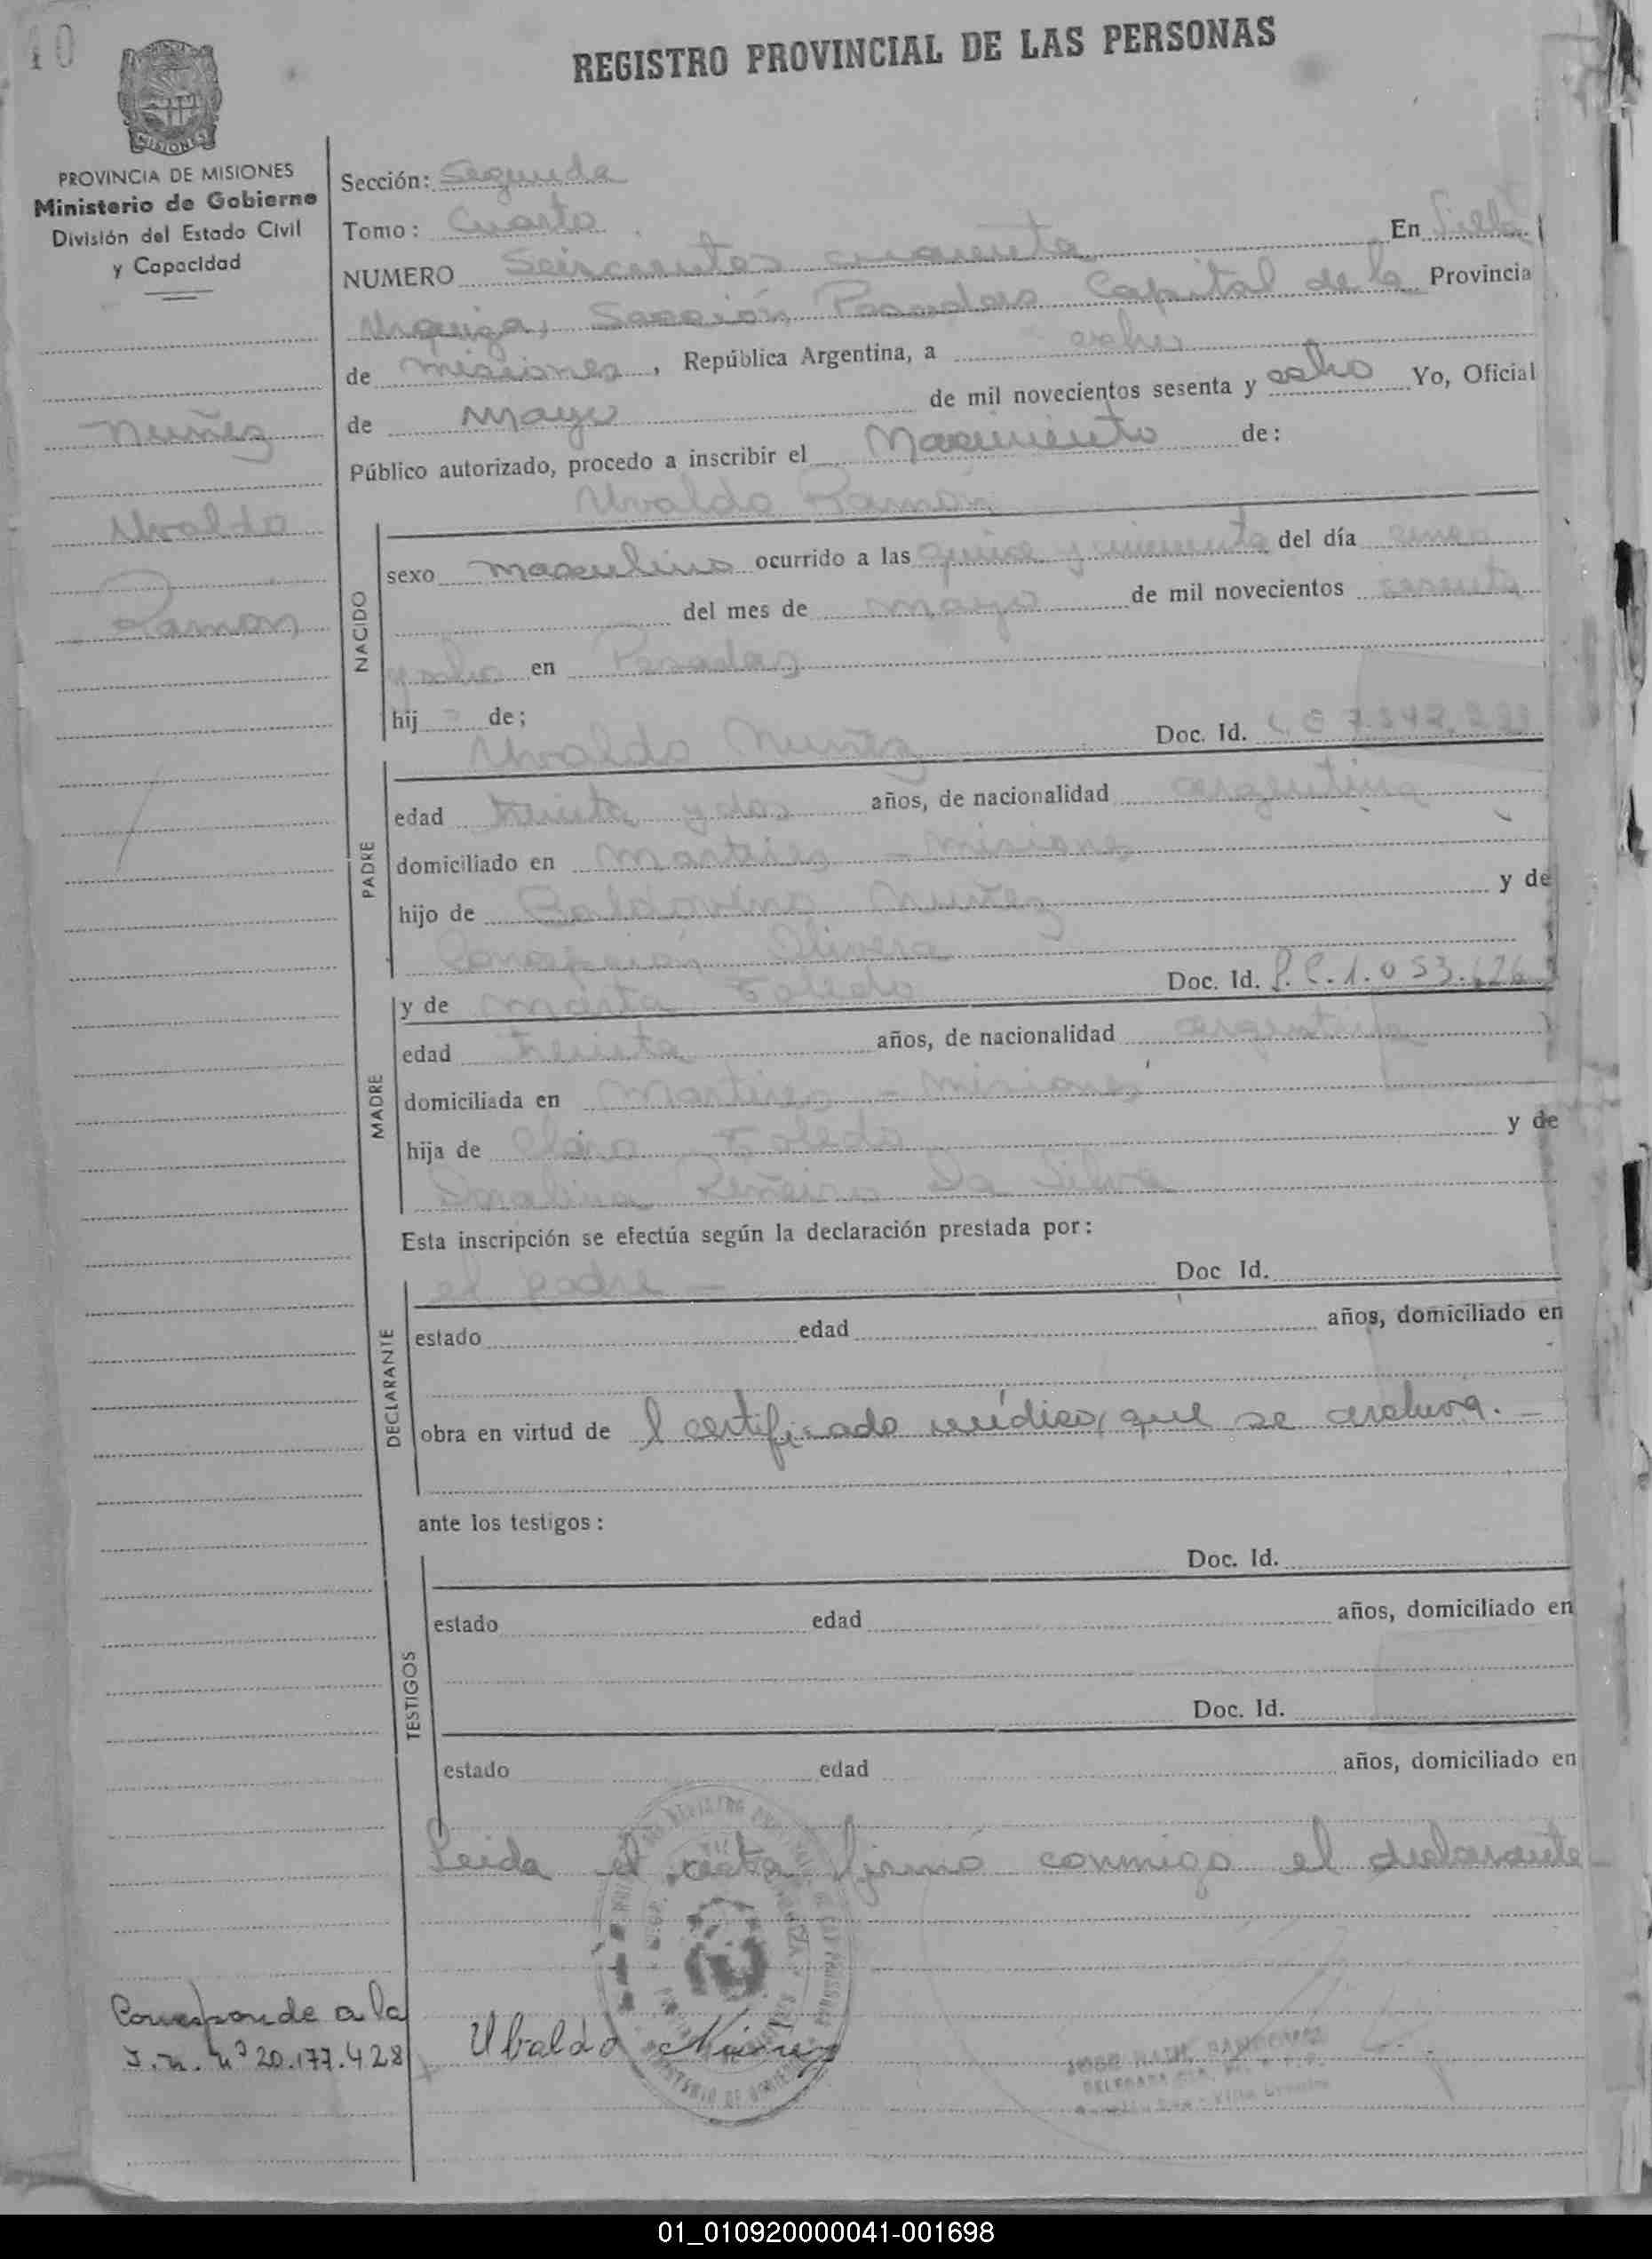 40
REGISTRO PROVINCIAL DE LAS PERSONAS
MISIONES
PROVINCIA DE MISIONES
Ministerio de Gobierno
División del Estado Civil
y Capacidad
Nuñez
Uvaldo
Ramon
Sección: Segunda
Tomo: Cuarto
NUMERO Seiscientos cuarenta En Villa
Urquiza, Sección Posadas Capital de la Provincia
de Misiones, República Argentina, a ocho
de Mayo de mil novecientos sesenta y ocho Yo, Oficial
Público autorizado, procedo a inscribir el Nacimiento de:
Uvaldo Ramon
NACIDO
sexo masculino ocurrido a las quince y cincuenta del día cinco
del mes de mayo de mil novecientos sesenta
y ocho en Posadas
hij de;
PADRE
Uvaldo Nuñez Doc. Id.
edad treinta y dos años, de nacionalidad argentina
domiciliado en Martires - Misiones
hijo de Baldovino Nuñez y de
Concepción Olivera
MADRE
y de Marta Toledo Doc. Id. L.C. 1.053.626
edad Treinta años, de nacionalidad argentina
domiciliada en Martires - Misiones
hija de Toledo y de
Da Silva
Esta inscripción se efectúa según la declaración prestada por:
DECLARANTE
el padre - Doc Id.
estado edad años, domiciliado en
obra en virtud de l certificado médico, que se archiva. -
ante los testigos:
TESTIGOS
Doc. Id.
estado edad años, domiciliado en
Doc. Id.
estado edad años, domiciliado en
Leida el acta firmó conmigo el declarante -
Corresponde a la
I.n. nº 20.177.428
Ubaldo Nuñez
01_010920000041-001698